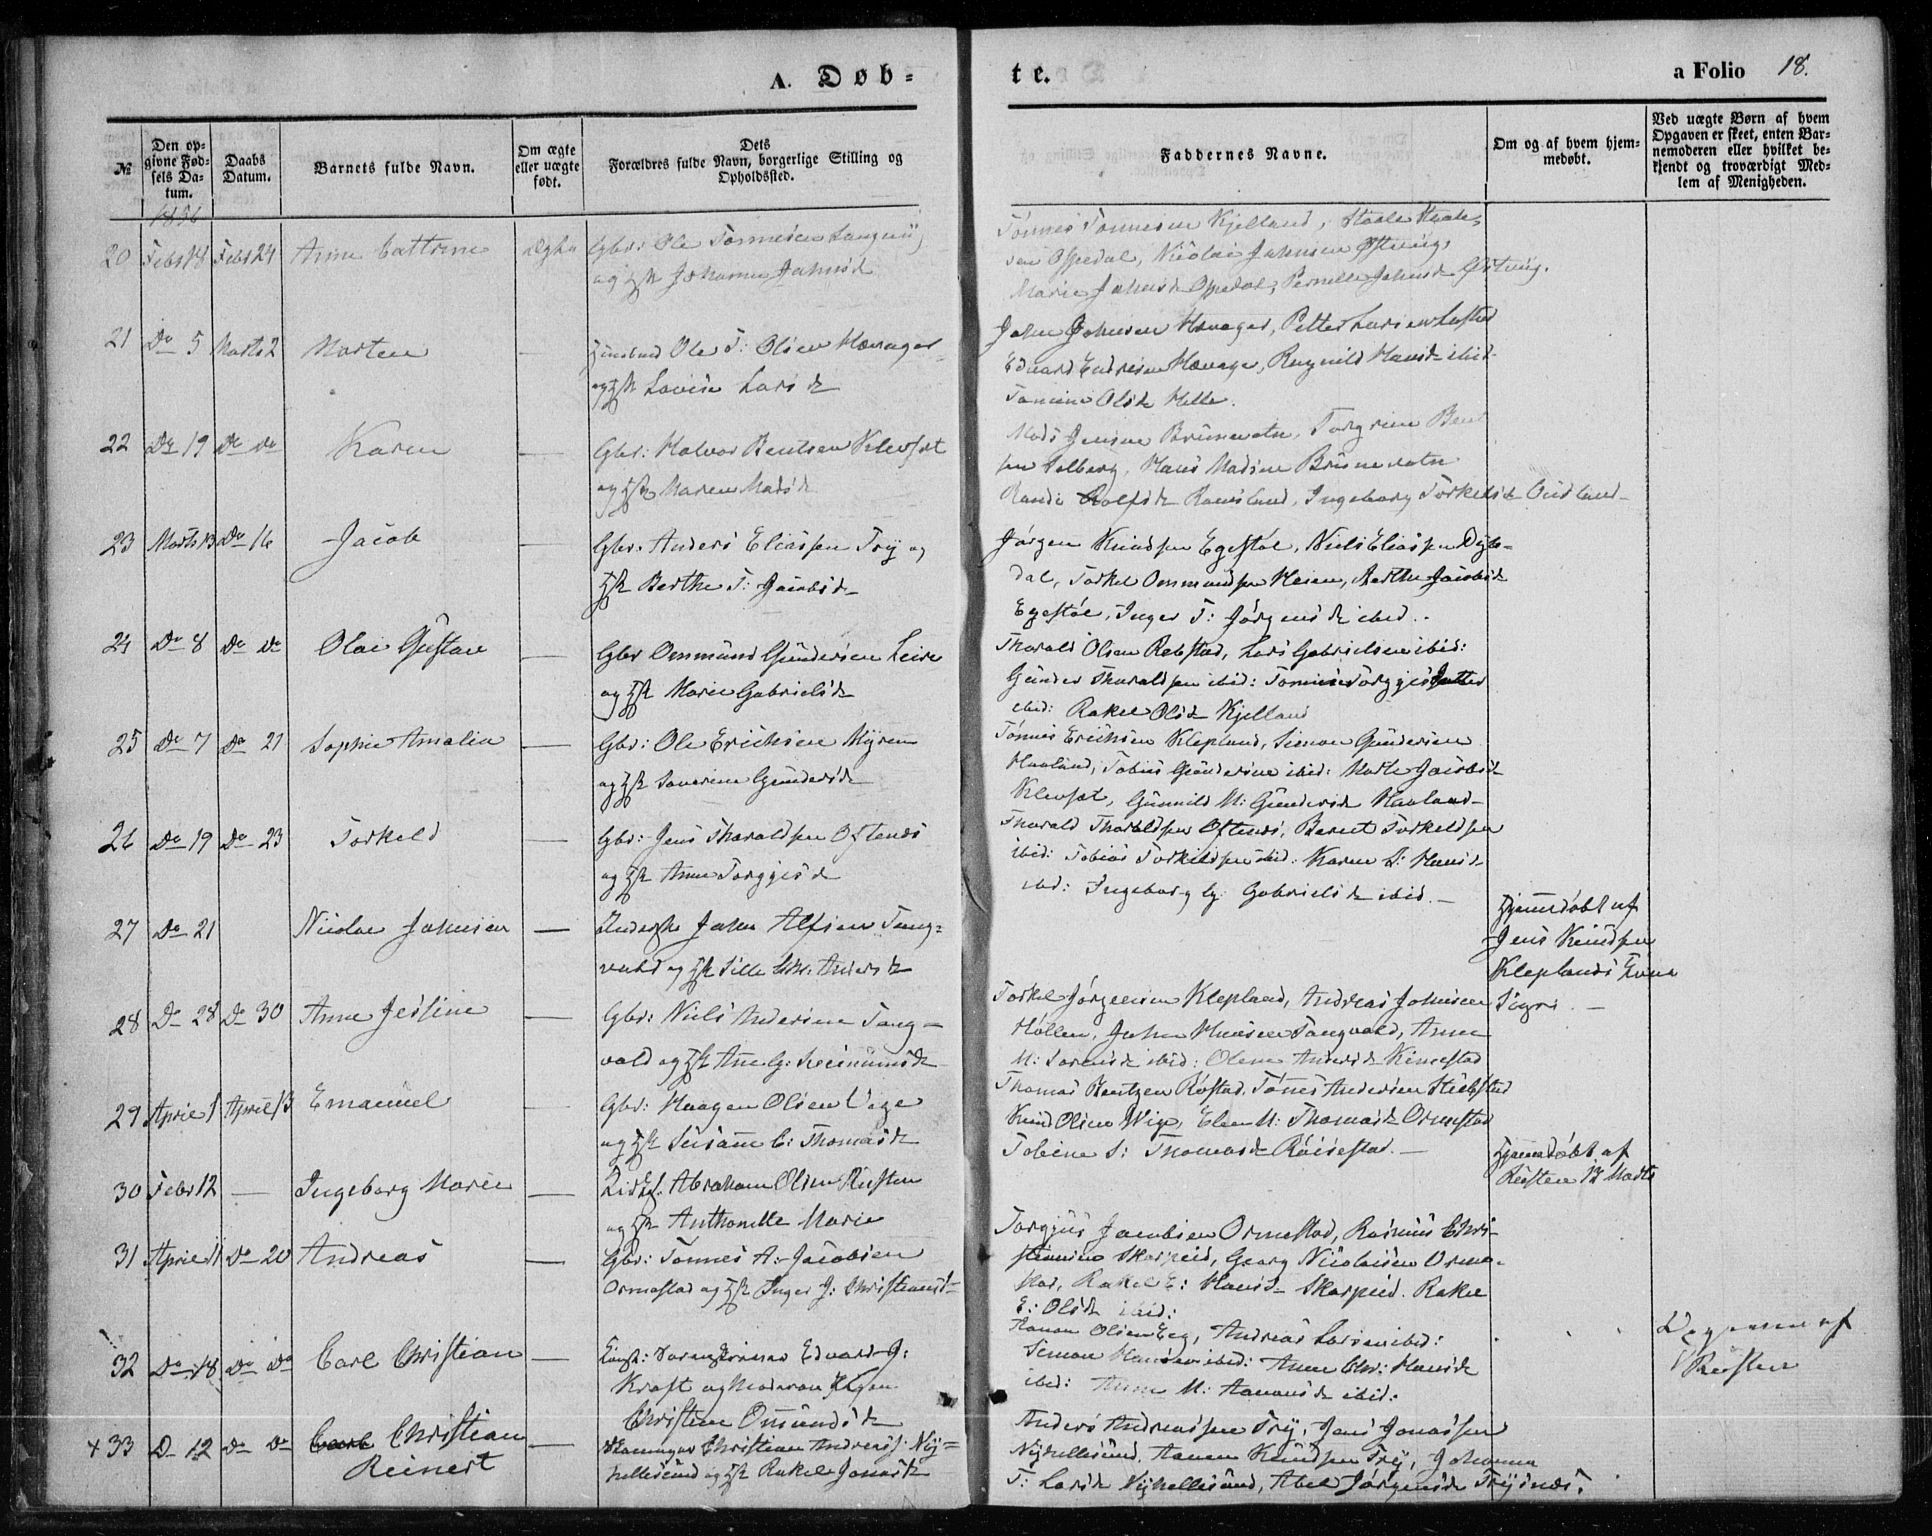 A. Døb=
te.
a Folio 18.
№
Den op-
givne Fød-
sels Da-
tum.
Daabs
Datum.
Barnets fulde Navn.
Om ægte
eller uægte
født.
Dets
Forældres fulde Navn, borgerlige Stilling og
Opholdssted.
Faddernes Navne.
Om og af hvem hjem-
medøbt.
Ved uægte Børn af hvem
Opgaven er skeet, enten Bar-
nemoderen eller hvilket be-
kjendt og troværdigt Med-
lem af Menigheden.
1856
20 Febr 18 Febr 24 Anne Cattrine ægte Gbr: Ole Tønnesen Langenij
og Hst Johanne Johnsd
Tønnes Tønnesen Kjelland, Staale Staale-
sen Opedal, Nicolai Johnsen Østvig,
Marie Johnsd Opedal, Pernille Johnsd Østvig.
21 Do 5 Marts 2 Morten — Huusmd Ole T: Olsen Hævager
og Hst Lovise Larsd
John Johnsen Hævager, Petter Larsen
Edvard Endresen Hævager, Ragnild Hansd ibid
Tomine Olsd Helle.
22 Do 19 Do Do Karen — Gbr: Halvor Bentsen Klevset
og Hst Maren Madsd
Mads Jensen Brunevatn, Torgrim Bent
sen Solberg, Hans Madsen Brunevatn
Randi Rolfsd Ramsland, Ingeborg Torkelsd Omland
23 Marts 13 Do 16 Jacob — Gbr. Anders Eliassen Try og
Hst Berthe T: Jacobsd
Jørgen Knudsen Egestøl, Niels Eliassen Dybe-
dal, Torkel Ommundsen Høien, Berthe Jacobsd
Egestøl, Inger T: Jørgensd ibid..
24 Do 8 Do Do Olai Gustav — Gbr Ommund Gundersen Leire
og Hst Marie Gabrielsd
Tharald Olsen Rebstad, Lars Gabrielsen ibid:
Gunder Tharaldsen ibid: Tomine Torgjesdatter
ibid: Rakel Olsd Kjelland
25 Do 7 Do 21 Sophie Amalia — Gbr: Ole Erichsen Myren
og Hst Severine Gundersd
Tønnes Erichsen Klepland, Simon Gundersen
Haaland, Tobias Gundersen ibid: Marthe Jacobsd
Klevset, Gunnild M: Gundersd Haaland
26 Do 19 Do 23 Torkeld — Gbr: Jens Tharaldsen Oftenes
og Hst Anne Torgjesd
Tharald Tharaldsen Oftenes, Berent Torkeldsen
ibid: Tobias Torkildsen ibid: Karen S: Hansd
ibd: Ingeborg G: Gabrielsd ibid. —
27 Do 21 Nicolai Johnsen — John Alfsen Tang=
vald og Hst Sille Chr: Andersd
Hjemdøbt af
Jens Knudsen
Kleplands Kone
Sigri. —
28 Do 28 Do 30 Anne Jessine — Gbr: Niels Andersen Tang=
vald og Hst Ane G:
Torkel Jørgensen Klepland, Andreas Johnsen
Høllen, John Hansen Tangvald, Anne
M: Sørensd ibid: Olene Andersd Kimestad
29 April 1 April 13 Emanuel — Gbr: Haagen Olsen Vege
og Hst Susanne C: Thomasd
Thomas Bentzen Røstad, Tønes Andersen Stubstad
Knud Olsen Wige, Elen M: Thomasd Ormestad
Tobine S: Thomasd Røisestad. —
30 Febr 12 — Ingeborg Marie — Abraham Olsen Reisten
og Hst Anthonette Marie
Hjemdøbt af
Reisten 12 Marts
31 April 11 Do 20 Andreas — Gbr: Tønnes A: Jacobsen
Ormestad og Hst Inger J: Christensd
Torgjus Jacobsen Ormestad, Rasmus Chri-
stensen Skarpeid, Georg Nicolaisen Orme-
stad, Rakel E: Hansd Skarpeid. Rakel
E: Olsd ibid:
32 Do 18 Do Do Carl Christian — Edvard J:
Kraft og Moderen
Christine Omundsd
Aanon Olsen Eeg, Andreas Larsen ibid:
Simon Hansen ibid: Anne Chr: Hansd
ibid: Anne M: Aanonsd ibid:
af
Reisten
+33 D 12 Do Do Christian
Reinert — Christian Andreass: Ny=
hellesund og Hst Rakel Jonasd
Anders Andreassen Try, Jens Jonassen
Nyhellesund, Aanen Knudsen Try, Johanna
T: Larsd Nyhellesund, Abel Jørgensd Trysnes.